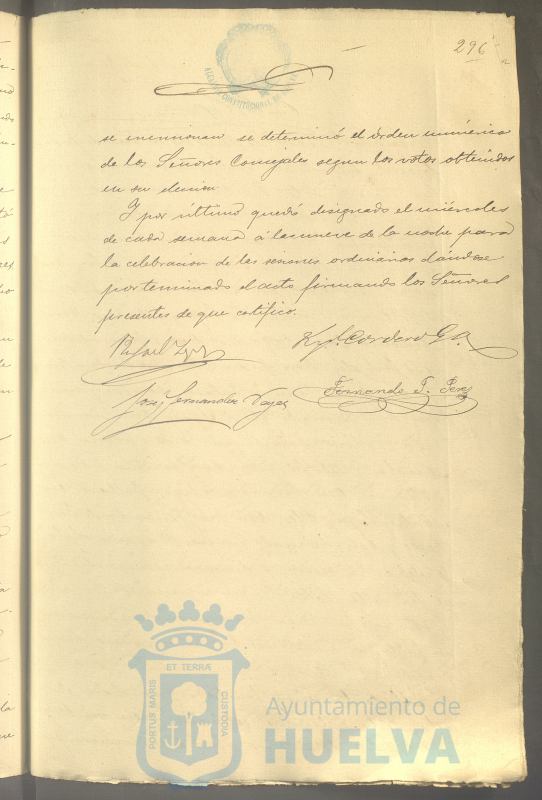 296
se mencionan se determinó el órden numérico
de los Señores Concejales segun los votos obtenidos
en su eleccion
Y por último quedó designado el miércoles
de cada semana á las nueve de la noche para
la celebracion de las sesiones ordinarias dándose
por terminado el acto firmando los Señores
presentes de que certifico.
Rafael
Cordero
José Fernandez
Fernando
PORTUS MARIS
ET TERRÆ
CUSTODIA
Ayuntamiento de
HUELVA